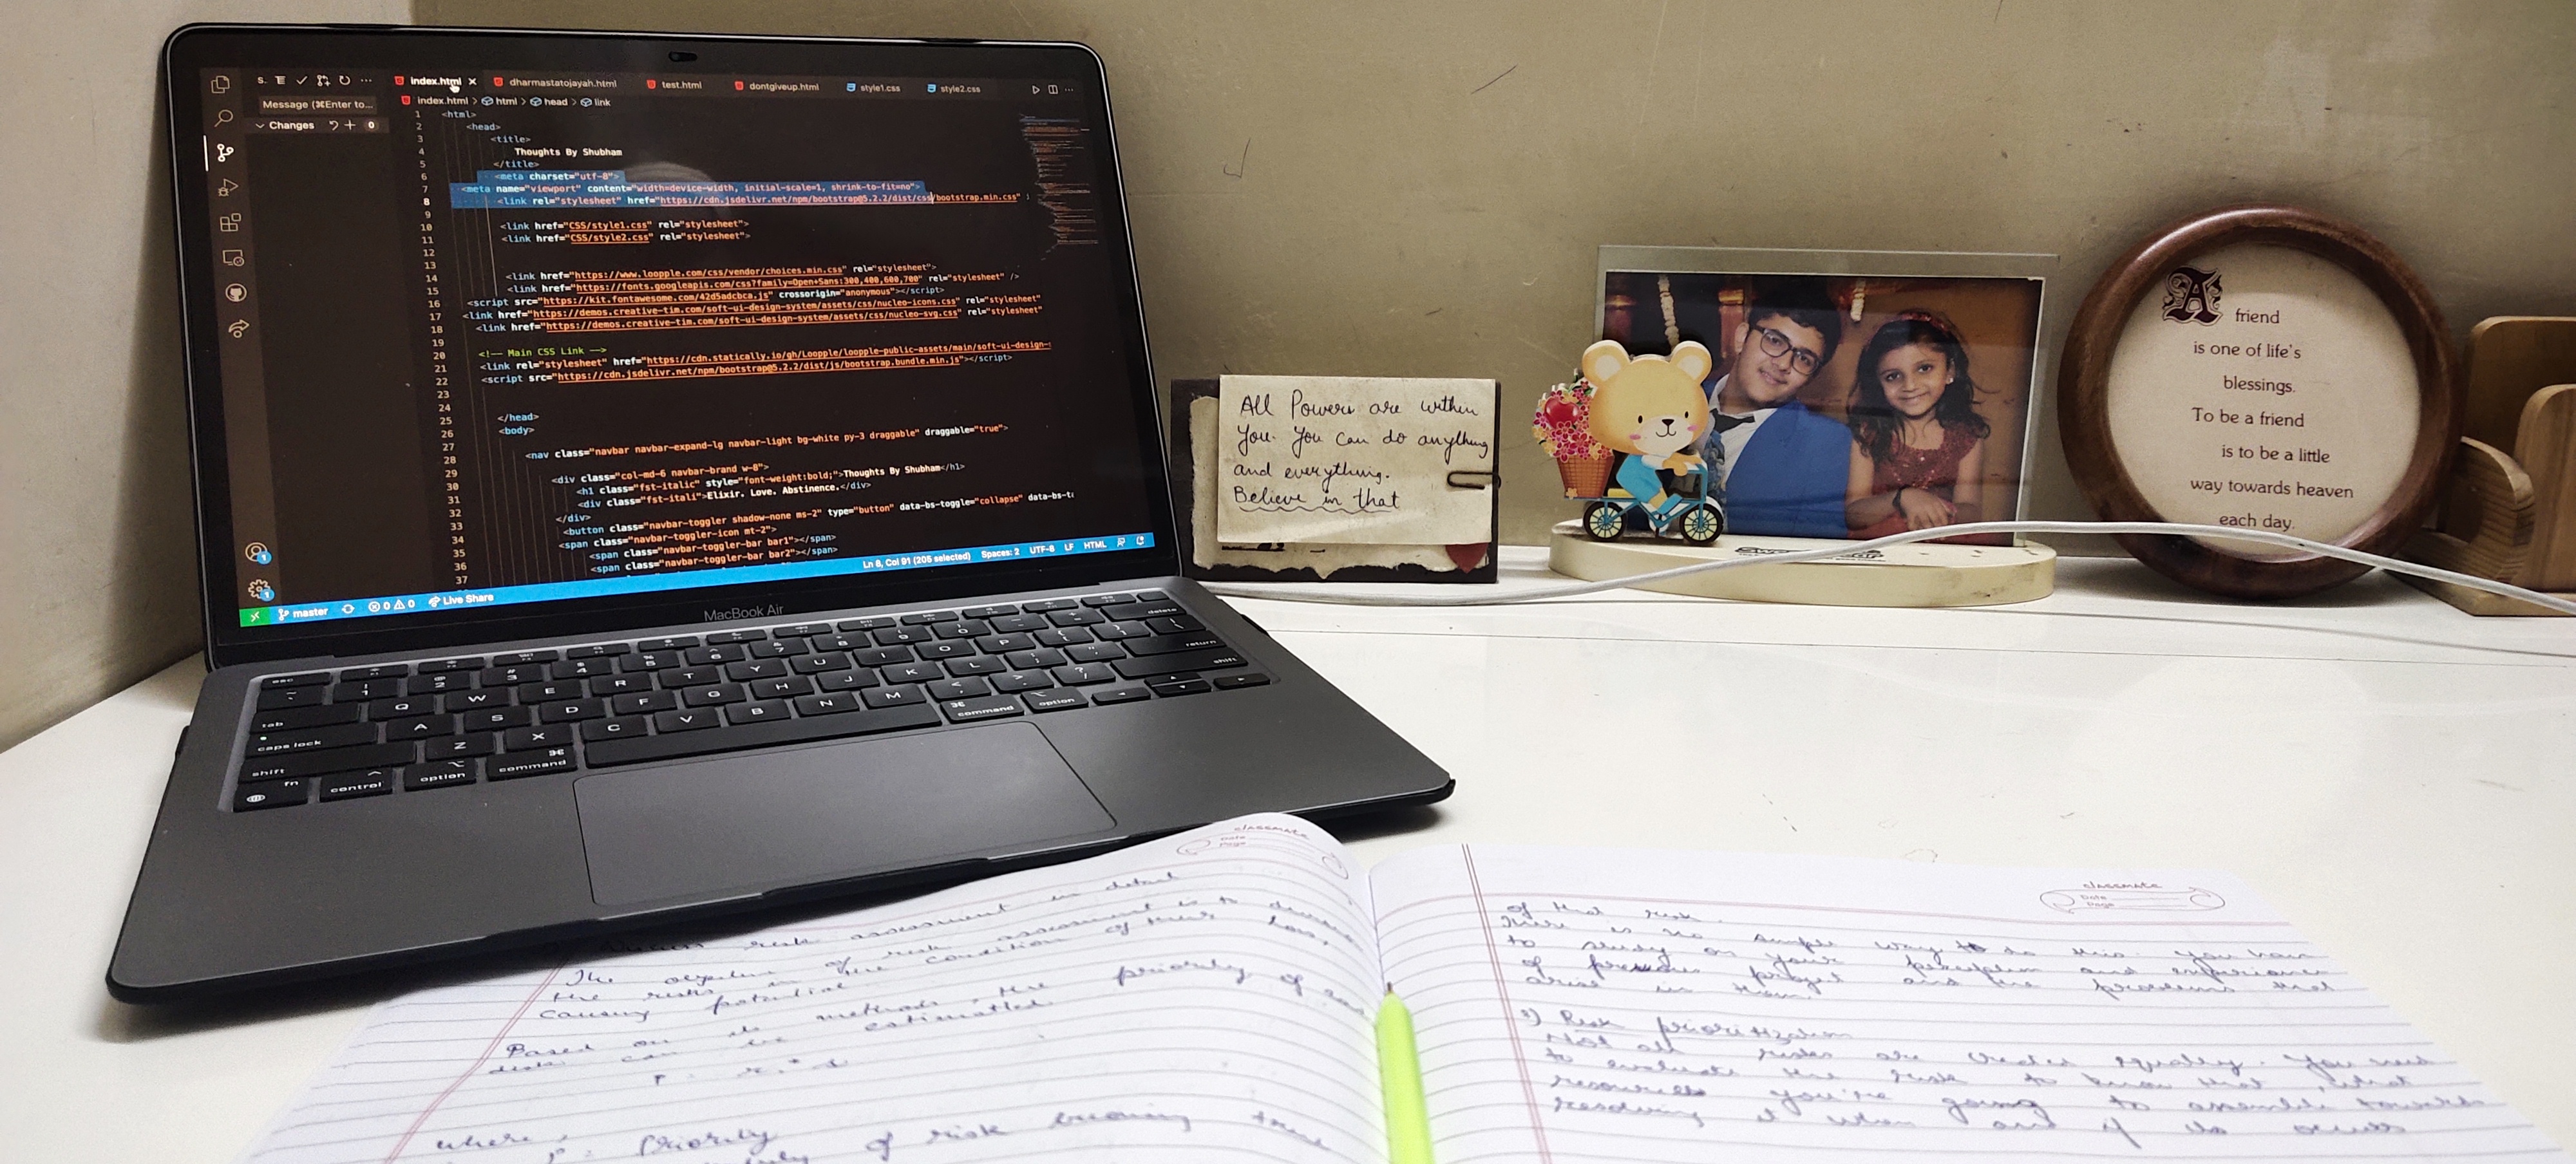 S.
index.html
dharmastatojayah.html
test.html
dontgiveup.html
style1.css
style2.css
Message (⌘Enter to...
index.html > html > head > link
Changes 0
1 <html>
2 <head>
3 <title>
4 Thoughts By Shubham
5 </title>
6 <meta charset="utf-8">
7 <meta name="viewport" content="width=device-width, initial-scale=1, shrink-to-fit=no">
8 <link rel="stylesheet" href="https://cdn.jsdelivr.net/npm/bootstrap@5.2.2/dist/css/bootstrap.min.css"
9
10 <link href="CSS/style1.css" rel="stylesheet">
11 <link href="CSS/style2.css" rel="stylesheet">
12
13
14 <link href="https://www.loopple.com/css/vendor/choices.min.css" rel="stylesheet">
15 <link href="https://fonts.googleapis.com/css?family=Open+Sans:300,400,600,700" rel="stylesheet" />
16 <script src="https://kit.fontawesome.com/42d5adcbca.js" crossorigin="anonymous"></script>
17 <link href="https://demos.creative-tim.com/soft-ui-design-system/assets/css/nucleo-icons.css" rel="stylesheet"
18 <link href="https://demos.creative-tim.com/soft-ui-design-system/assets/css/nucleo-svg.css" rel="stylesheet"
19
20 <!-- Main CSS Link -->
21 <link rel="stylesheet" href="https://cdn.statically.io/gh/Loopple/loopple-public-assets/main/soft-ui-design-
22 <script src="https://cdn.jsdelivr.net/npm/bootstrap@5.2.2/dist/js/bootstrap.bundle.min.js"></script>
23
24
25 </head>
26 <body>
27
28 <nav class="navbar navbar-expand-lg navbar-light bg-white py-3 draggable" draggable="true">
29
30 <div class="col-md-6 navbar-brand w-8">
31 <h1 class="fst-italic" style="font-weight:bold;">Thoughts By Shubham</h1>
32 <div class="fst-itali">Elixir. Love. Abstinence.</div>
33 </div>
34 <button class="navbar-toggler shadow-none ms-2" type="button" data-bs-toggle="collapse" data-bs-t
35 <span class="navbar-toggler-icon mt-2">
36 <span class="navbar-toggler-bar bar1"></span>
37 <span class="navbar-toggler-bar bar2"></span>
master 0 0 Live Share
Ln 8, Col 91 (205 selected) Spaces: 2 UTF-8 LF HTML
MacBook Air
esc
delete
tab Q W E R T Y U I O P
return
caps lock A S D F G H J K L
shift Z X C V B N M shift
fn control option command command option
All Powers are within
you. You can do anything
and everything.
Believe in that
A friend
is one of life's
blessings.
To be a friend
is to be a little
way towards heaven
each day.
classmate
Date
Page
risk assessment in detail
The objective of risk assessment is to
the risks in the condition of their loss,
causing potential
Based on its methods, the priority of
can be estimated
where,
Priority
of risk becoming true
classmate
Date
Page
of that risk.
There is no simple way to do this. You have
to study on your perception and experience
of previous project and the problems that
arise in them.
Risk prioritization
Not all risks are created equally. You need
to evaluate the risk to know that, what
resources you're going to assemble towards
resolving it when and if its occurs